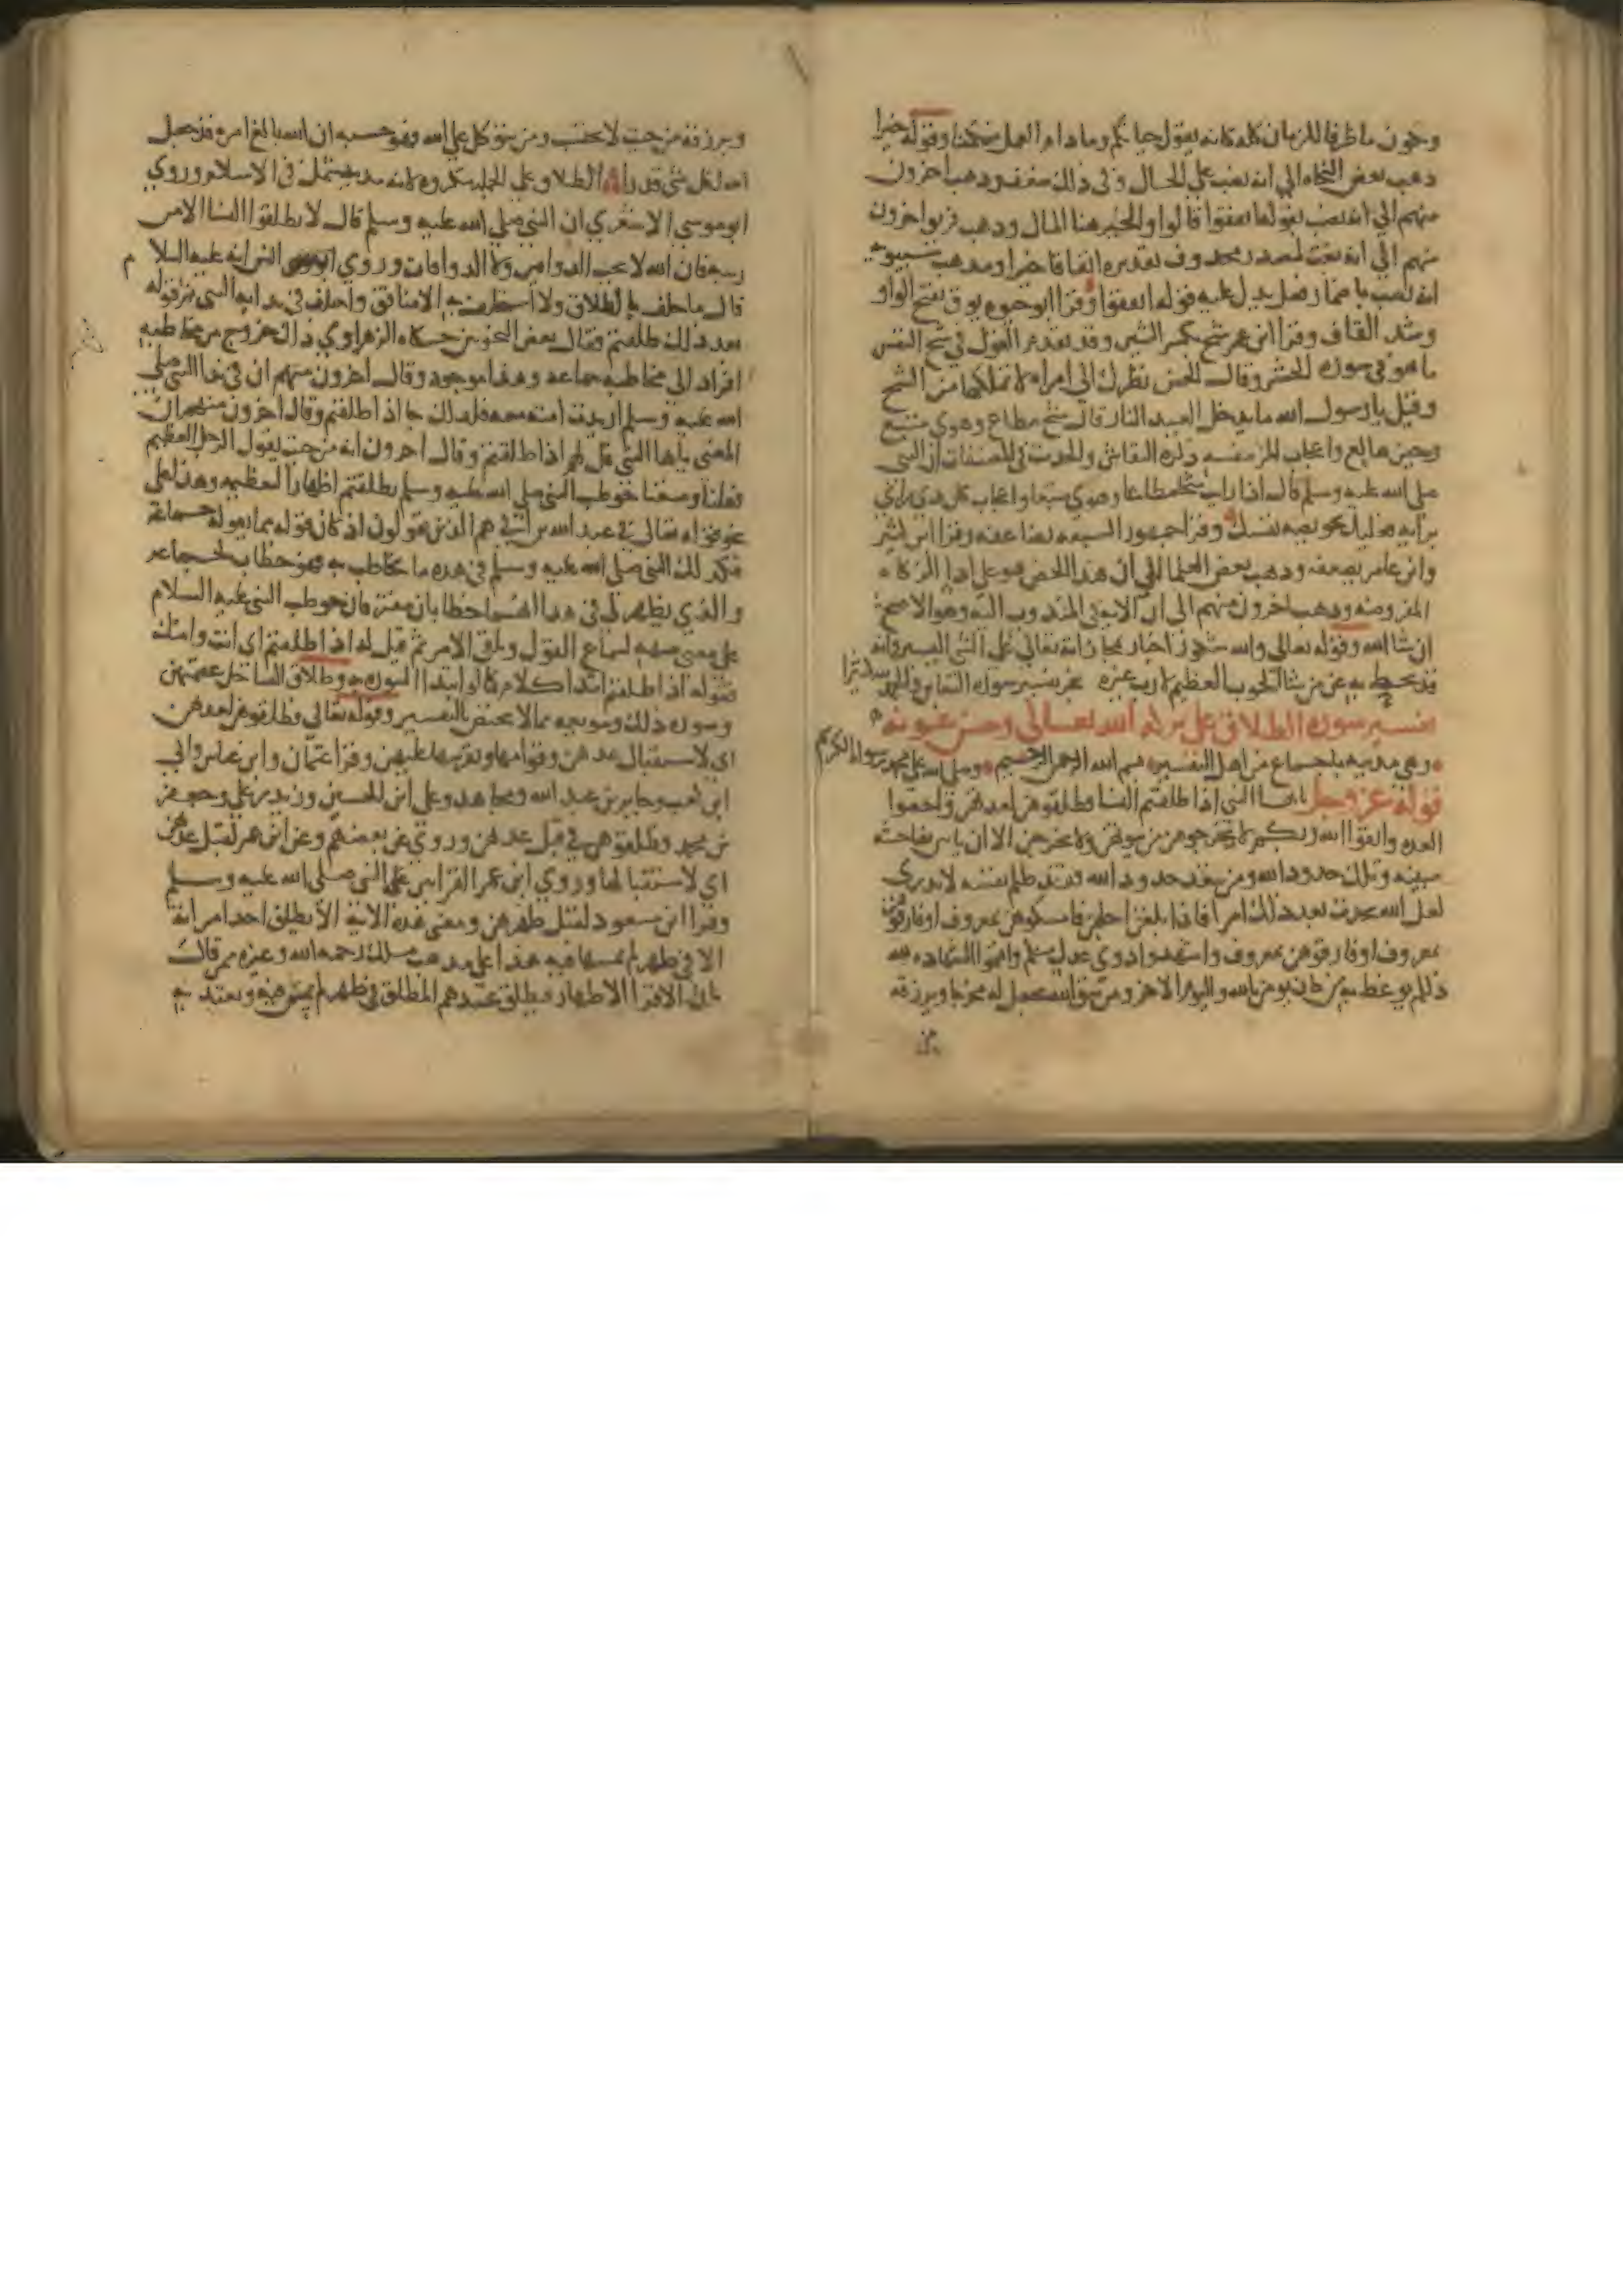 وتكون ما ظرفا للزمان كله كانه يقول حياتكم وما دام العمل ممكنا وقوله خيرا
ذهب بعض النحاه الى انه نصب على الحال وفي ذلك ضعف وذهب اخرون
منهم الى انه نصب بقوله انفقوا قالوا والخير هنا المال وذهب فريق اخرون
منهم الى انه نعت لمصدر محذوف تقديره انفاقا خيرا ومذهب سيبويه
انه نصب باضمار فعل يدل عليه قوله انفقوا وقرا ابو حيوه يوق بفتح الواو
وشد القاف وقرا ابن عمر شح بكسر الشين وقد تقدم القول في شح النفس
ما هو في سورة الحشر وقال الحسن نظرك الى امراه لا تملكها من الشح
وقيل يا رسول الله ما يدخل العبد النار قال شح مطاع وهوى متبع
وجبن هالع واعجاب المرء بنفسه ذكره النقاش والحديث في المصنفات ان النبي
صلى الله عليه وسلم قال اذا رايت شحا مطاعا وهوى متبعا واعجاب كل ذي راي
برايه فعليك بخويصه نفسك وقرا جمهور السبعه يضاعفه وقرا ابن كثير
وابن عامر يضعفه وذهب بعض العلما الى ان هذا الحض هو على ادا الزكاه
المفروضه وذهب اخرون منهم الى ان الايه في المندوب اليه وهو الاصح
ان شا الله وقوله تعالى والله شكور اخبار بمجازاته تعالى على الشي اليسير وانه
قد يحط به عن من شا الحوب العظيم لا رب غيره نجز تفسير سورة التغابن والحمد لله كثيرا
تفسير سورة الطلاق على بركة الله تعالى وحسن عونه
وهي مدنيه باجماع من اهل التفسير بسم الله الرحمن الرحيم وصلى الله على محمد رسوله الكريم
قوله عز وجل يايها النبي اذا طلقتم النسا فطلقوهن لعدتهن واحصوا
العده واتقوا الله ربكم لا تخرجوهن من بيوتهن ولا يخرجن الا ان ياتين بفاحشه
مبينه وتلك حدود الله ومن يتعد حدود الله فقد ظلم نفسه لا تدري
لعل الله يحدث بعد ذلك امرا فاذا بلغن اجلهن فامسكوهن بمعروف او فارقوهن
بمعروف او فارقوهن بمعروف واشهدوا ذوي عدل منكم واقيموا الشهاده لله
ذلكم يوعظ به من كان يومن بالله واليوم الاخر ومن يتق الله يجعل له مخرجا ويرزقه
من
ويرزقه من حيث لا يحتسب ومن يتوكل على الله فهو حسبه ان الله بالغ امره قد جعل
الله لكل شي قدرا الطلاق على الجمله مكروه لانه تبديد شمل في الاسلام وروي
ابو موسى الاشعري ان النبي صلى الله عليه وسلم قال لا تطلقوا النسا الا من
ريبه فان الله لا يحب الذواقين ولا الذواقات وروي انس انه عليه السلام
قال ما حلف بالطلاق ولا استحلف به الا منافق واختلف في ندايه النبي ثم قوله
بعد ذلك طلقتم فقال بعض النحويين حكاه الزهراوي ذلك خروج من مخاطبه
افراد الى مخاطبه جماعه وهذا موجود وقال اخرون منهم ان في ندا النبي صلى
الله عليه وسلم اريدت امته معه فلذلك جا اذا طلقتم وقال اخرون منهم ان
المعنى يايها النبي قل لهم اذا طلقتم وقال اخرون انه من حيث يقول الرجل العظيم
فعلنا وصنعنا خوطب النبي صلى الله عليه وسلم بطلقتم اظهارا لتعظيمه وهذا على
نحو قوله تعالى في عبد الله بن ابي هم الذين يقولون اذ كان قوله مما يقوله جماعة
فكذلك النبي صلى الله عليه وسلم في هذه ما يخاطب به فهو خطاب لجماعه
والذي يظهر لي في هذا انهما خطابان مفترقان خوطب النبي عليه السلام
على معنى تنبيهه لسماع القول وتلقي الامر ثم قيل له اذا طلقتم اي انت وامتك
فقوله اذا طلقتم ابتدا كلام كما لو ابتدا السوره به وطلاق النسا حل عصمتهن
وصوره ذلك وتنويعه مما لا يختص بالتفسير وقوله تعالى فطلقوهن لعدتهن
اي لاستقبال عدتهن وقوامها وتقريبها عليهن وقرا عثمان وابن عباس وابي
ابن كعب وجابر بن عبد الله ومجاهد وعلي ابن الحسين وزيد بن علي وجعفر
بن محمد فطلقوهن في قبل عدتهن وروي عن بعضهم وعن ابن عمر لقبل عدتهن
اي لاستقبالها وروي ابن عمر القراتين على النبي صلى الله عليه وسلم
وقرا ابن مسعود لقبل طهرهن ومعنى هذه الايه الا يطلق احد امراته
الا في طهر لم يمسها فيه هذا على مذهب مالك رحمه الله وغيره ممن قال
بان الاقرا الاطهار فيطلق عندهم المطلق في طهر لم يمس فيه وتعتد به